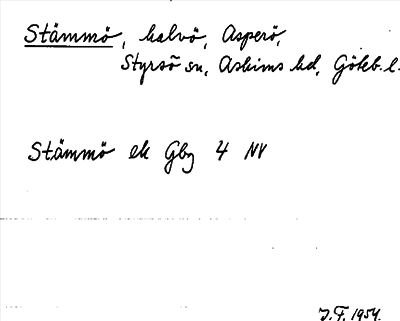 Stämmö, halvö, Asperö,
Styrsö sn, Askims hd, Göteb. l.
Stämmö ek Gbg 4 NV
J.F. 1954.